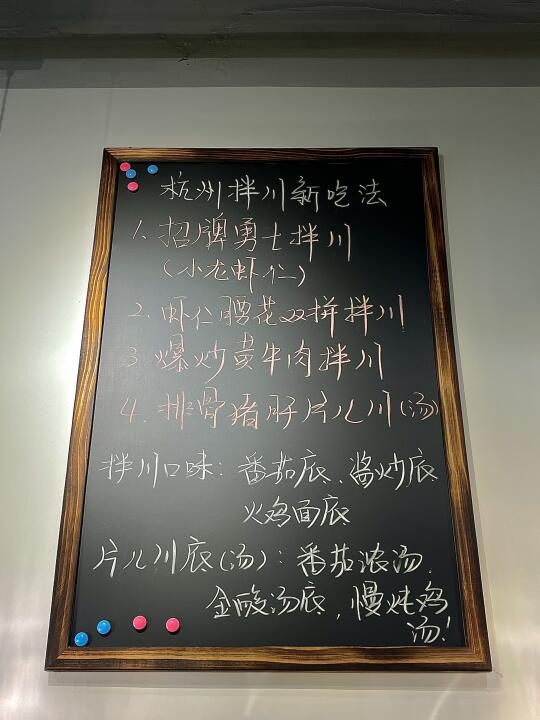 杭州拌川新吃法
1. 招牌勇士拌川
（小龙虾仁）
2. 虾仁腰花双拼拌川
3 爆炒黄牛肉拌川
4. 排骨猪肝片儿川（汤）
拌川口味：番茄底、酱炒底
火鸡面底
片儿川底（汤）：番茄浓汤、
金酸汤底，慢炖鸡
汤！